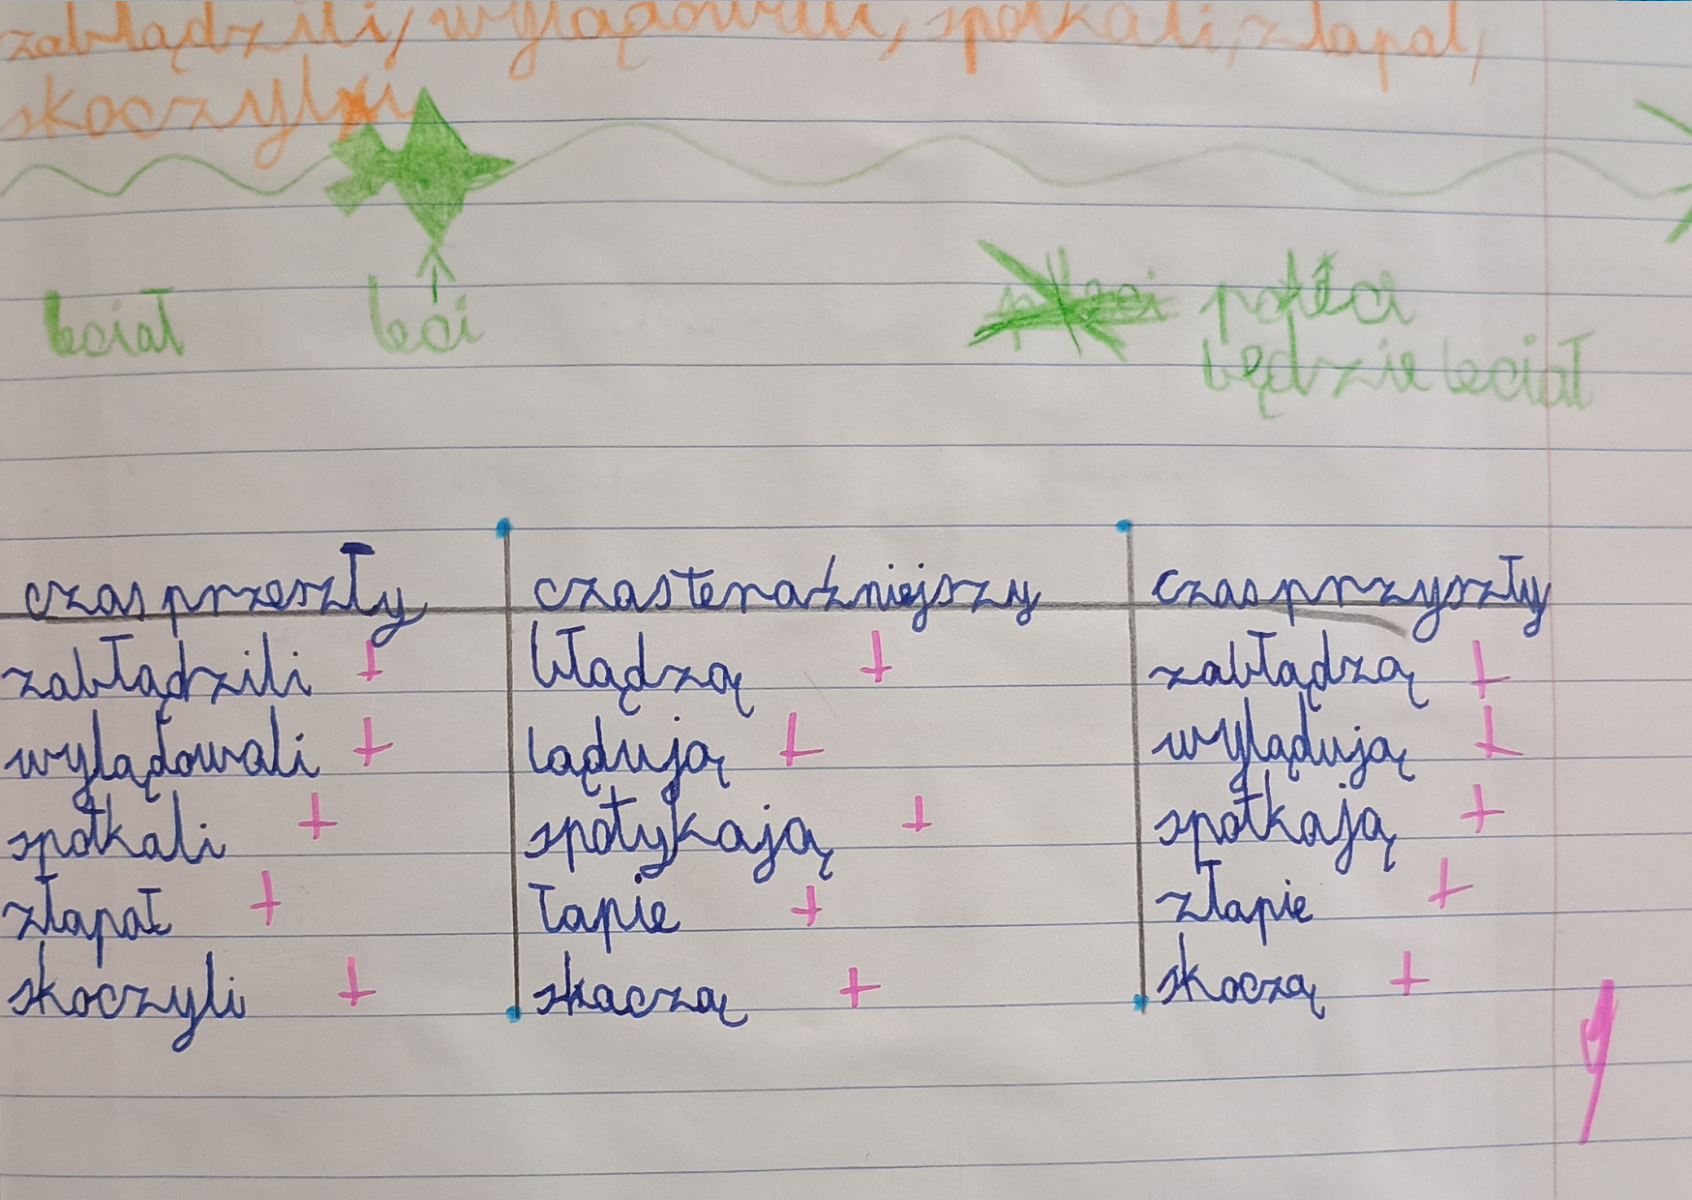 zabłądzili, wylądowali, spotkali, złapał,
skoczyli
leciał leci poleci
będzie leciał
czas przeszły czas teraźniejszy czas przyszły
zabłądzili + błądzą + zabłądzą +
wylądowali + lądują + wylądują +
spotkali + spotykają + spotkają +
złapał + łapie + złapie +
skoczyli + skaczą + skoczą +